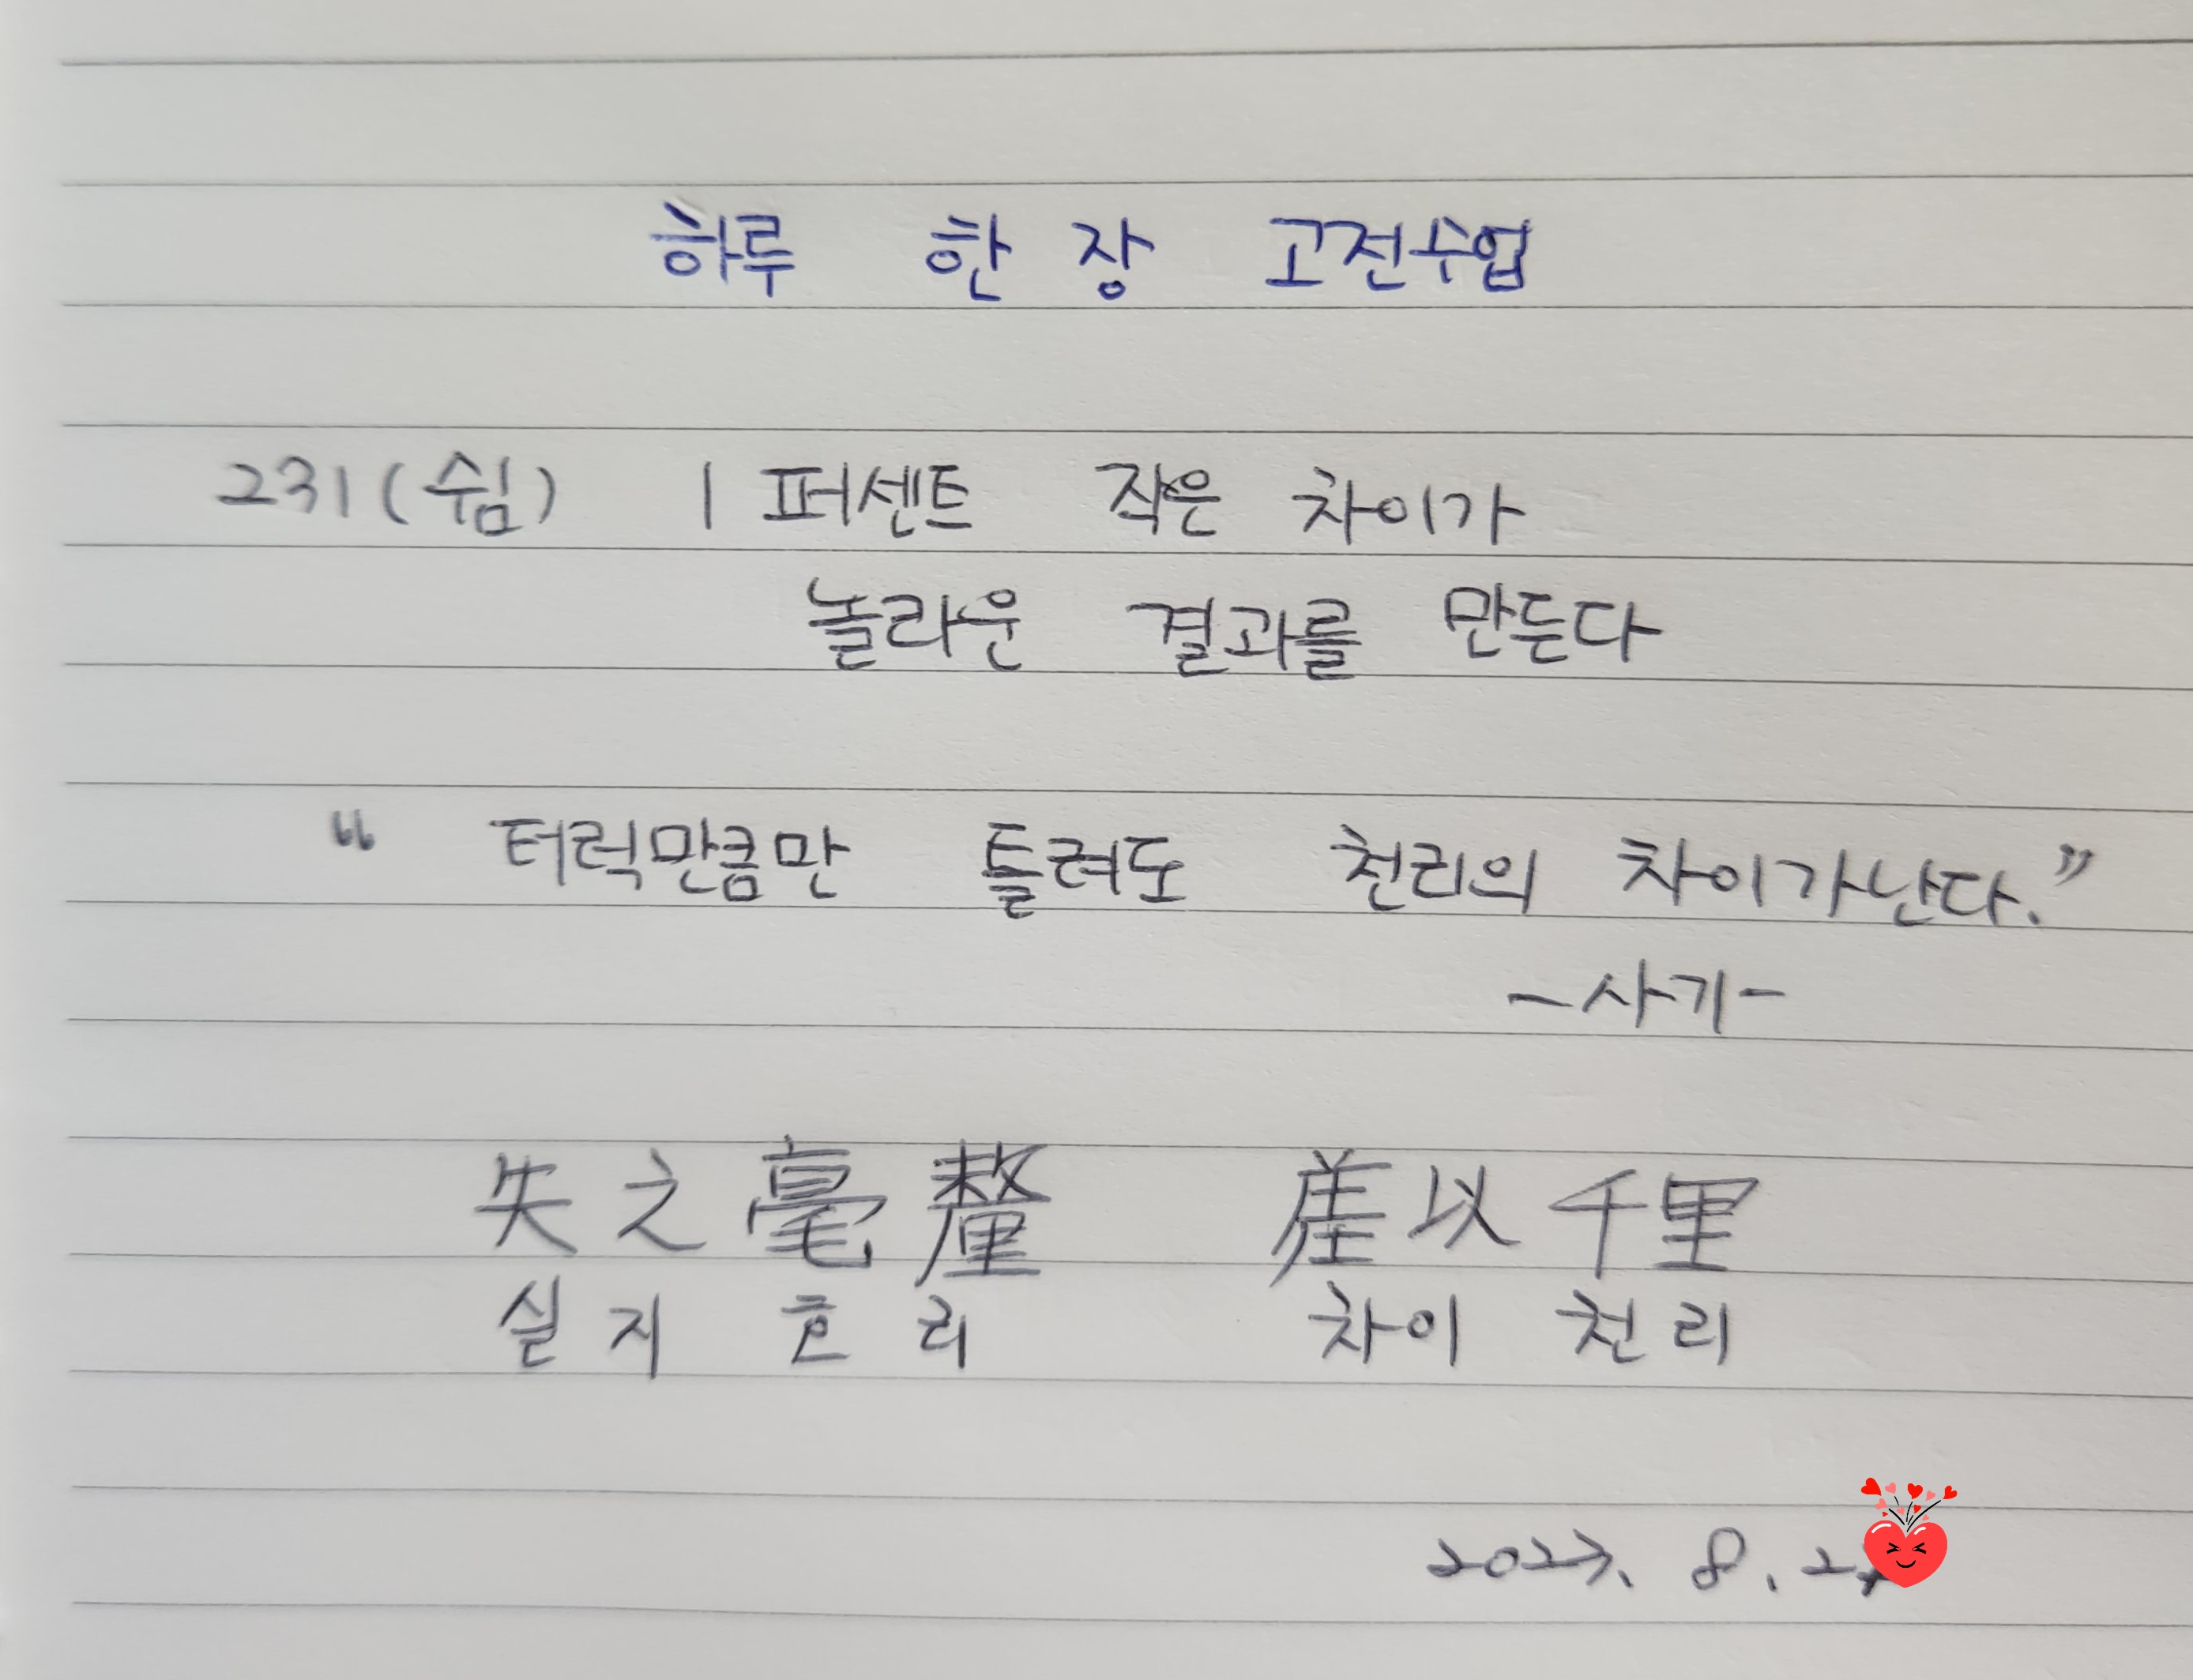 하루 한 장 고전수업
231(쉼) 1퍼센트 작은 차이가
놀라운 결과를 만든다
" 터럭만큼만 틀려도 천리의 차이가난다."
-사기-
失之毫釐 差以千里
실지 호리 차이 천리
2023. 8.